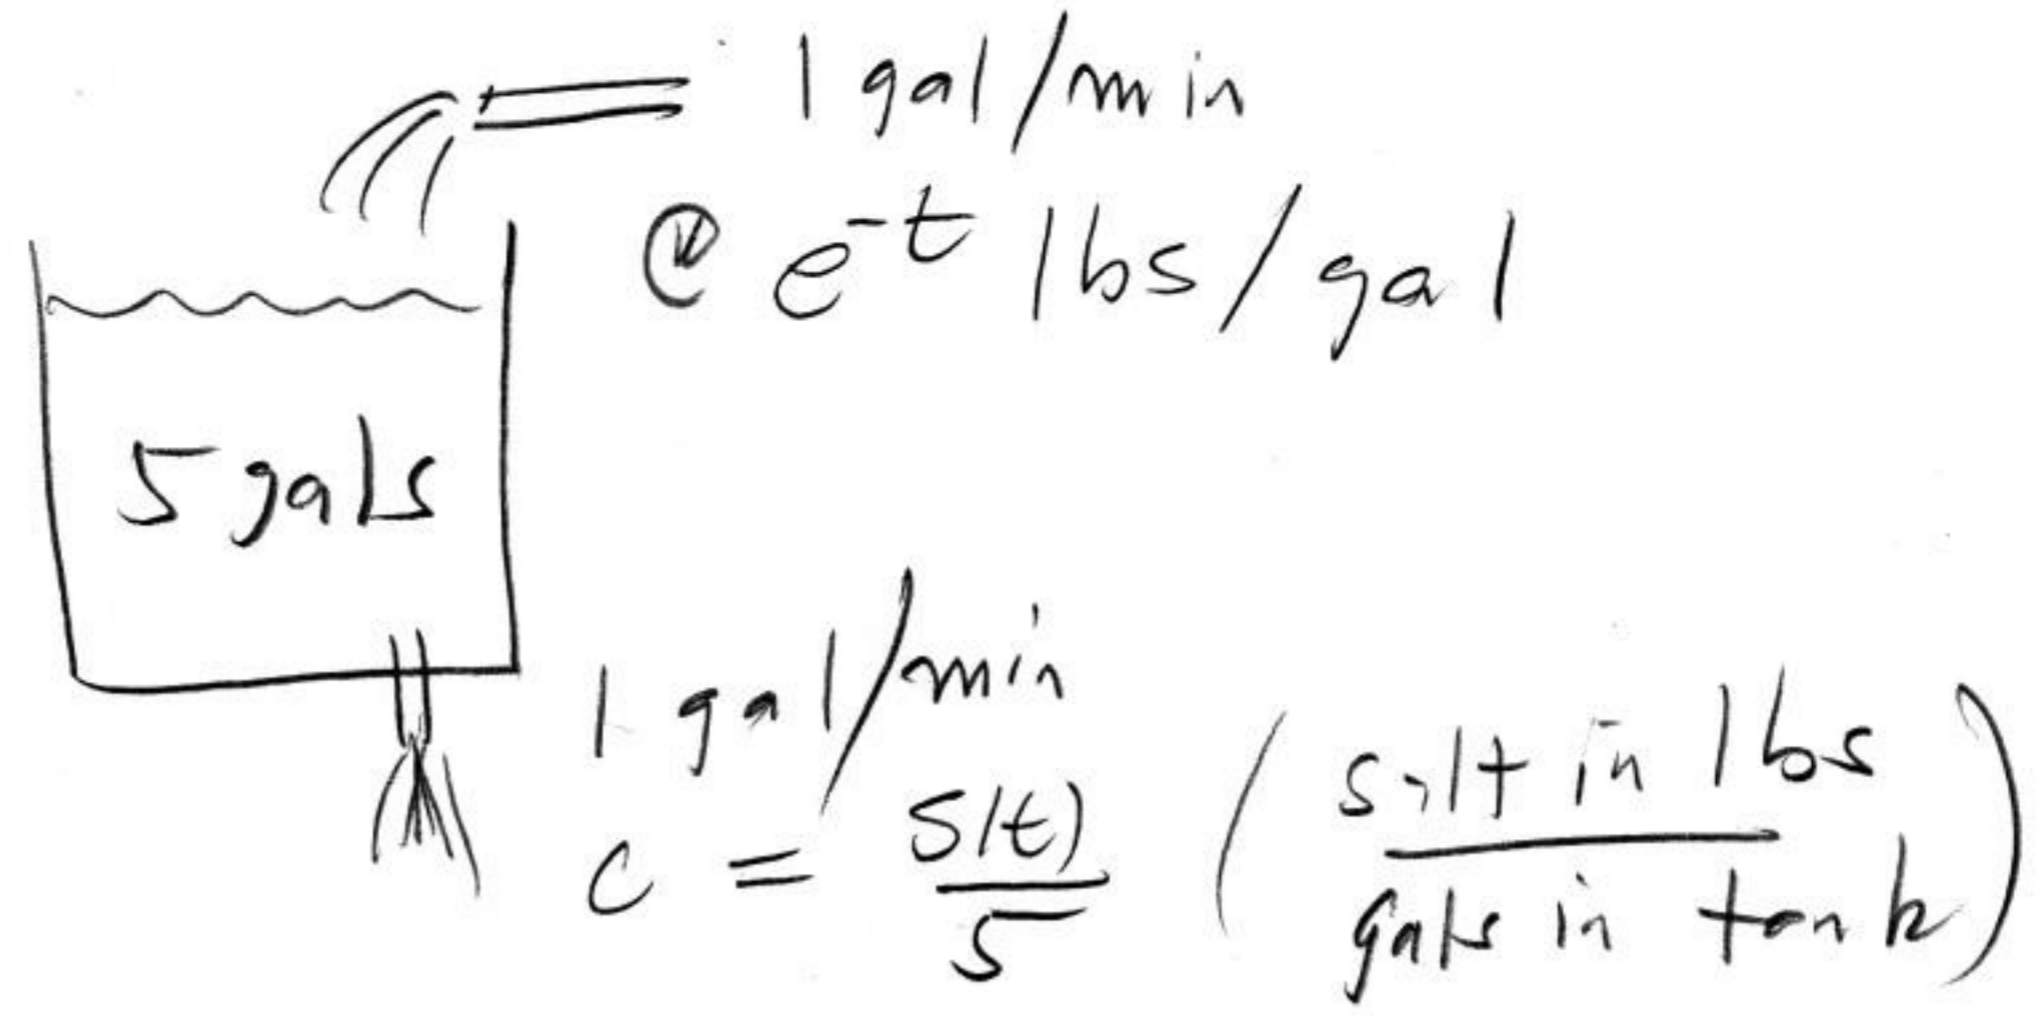 1 gal/min
@ e^-t lbs/gal
5 gals
1 gal/min
c = S(t)/5 (salt in lbs / gals in tank)